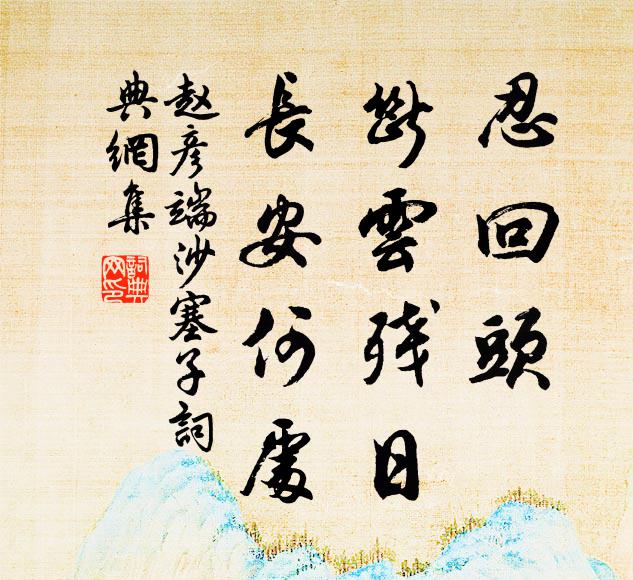 忍回頭
斷雲殘日
長安何處
赵彥端沙塞子詞
典網集
詞典
网印